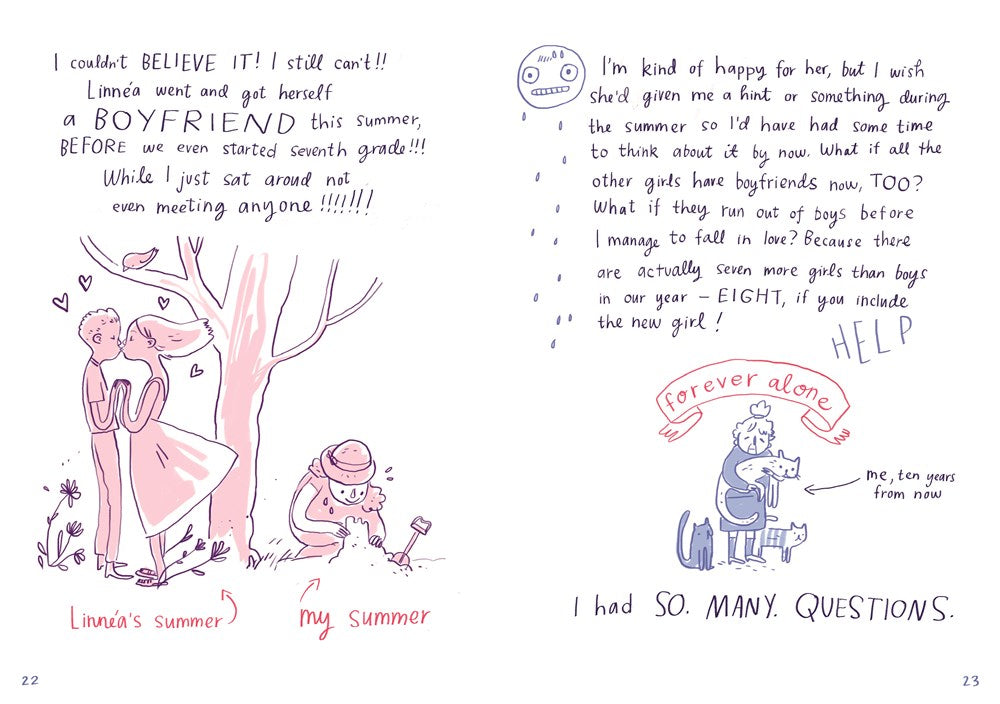 I couldn't BELIEVE IT! I still can't!!
Linnéa went and got herself
a BOYFRIEND this summer,
BEFORE we even started seventh grade!!!
While I just sat aroud not
even meeting anyone!!!!!!!
Linnéa's summer
my summer
22
I'm kind of happy for her, but I wish
she'd given me a hint or something during
the summer so I'd have had some time
to think about it by now. What if all the
other girls have boyfriends now, TOO?
What if they run out of boys before
I manage to fall in love? Because there
are actually seven more girls than boys
in our year – EIGHT, if you include
the new girl!
HELP
forever alone
me, ten years
from now
I had SO. MANY. QUESTIONS.
23